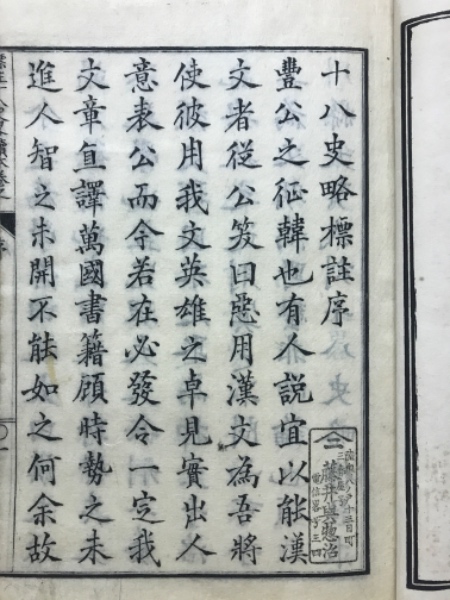 十八史略標註序
豐公之征韓也有人說宜以能漢
文者從公笑曰惡用漢文為吾將
使彼用我文英雄之卓見實出人
意表公而今若在必發令一定我
文章直譯萬國書籍顧時勢之未
進人智之未開不能如之何余故
藤井與惣治
序